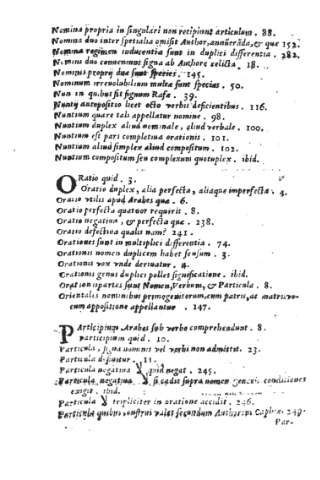 Nomina propria in singulari non recipiunt articulum. 88.
Nomina duo inter specialia omisit Author, annumeranda, & quæ 152.
Nomina regimen inducentia sunt in duplici differentia. 282.
Nomini duo communiora signa ab Authore relicta. 18.
Nominis proprij duæ sunt species. 145.
Nominum irresolubilium multæ sunt species. 50.
Nun in quibus sit signum Rafa. 39.
Nuntij antepositio licet octo verbis deficientibus. 116.
Nuntium quare tali appellatur nomine. 98.
Nuntium duplex aliud nominale, aliud verbale. 100.
Nuntium est pars completiua orationis. 101.
Nuntium aliud simplex aliud compositum. 102.
Nuntium compositum seu complexum quotuplex. ibid.
ORatio quid. 3.
Oratio duplex, alia perfecta, aliaque imperfecta. 4.
Oratio vtilis apud Arabes quæ. 6.
Oratio perfecta quatuor requirit. 8.
Oratio negatiua, & perfecta quæ. 238.
Oratio defectiua qualis nam? 241.
Orationes sunt in multiplici differentia. 74.
Orationis nomen duplicem habet sensum. 3.
Orationis vox vnde deriuatur. 4.
Orationis genus duplici pollet significatione. ibid.
Orationis partes sunt Nomen, Verbum, & Particula. 8.
Orientales nominibus primogenitorum, cum patris, ac matris nocum
appositione appellantur. 147.
PArticipium Arabes sub verbo comprehendunt. 8.
Participium quid. 10.
Particula, signa nominis vel verbi non admittit. 23.
Particula diuiditur. 11.
Particula negatiua لا quid negat. 245.
Particula negatiua لا si cadit supra nomen conditiones
exigit. ibid.
Particula لا tripliciter in oratione accidit. 246.
Particulæ quibus construi valet secundum Authorem 249.
Par-